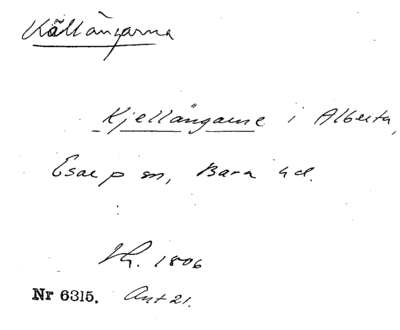 Källängarna
Kjellängarne i Alberta,
Esarp sn, Bara hd.
Hh. 1806
Nr 6315. Ant 21.